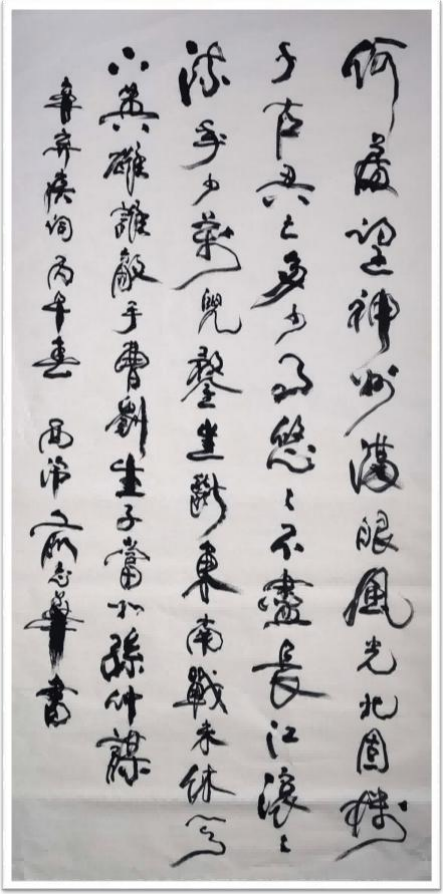 何處望神州滿眼風光北固樓
千古興亡多少事悠〻不盡長江滾〻
流年少萬兜鍪坐斷東南戰未休天
下英雄誰敵手曹劉生子當如孫仲謀
辛弃疾詞丙午春 西 書